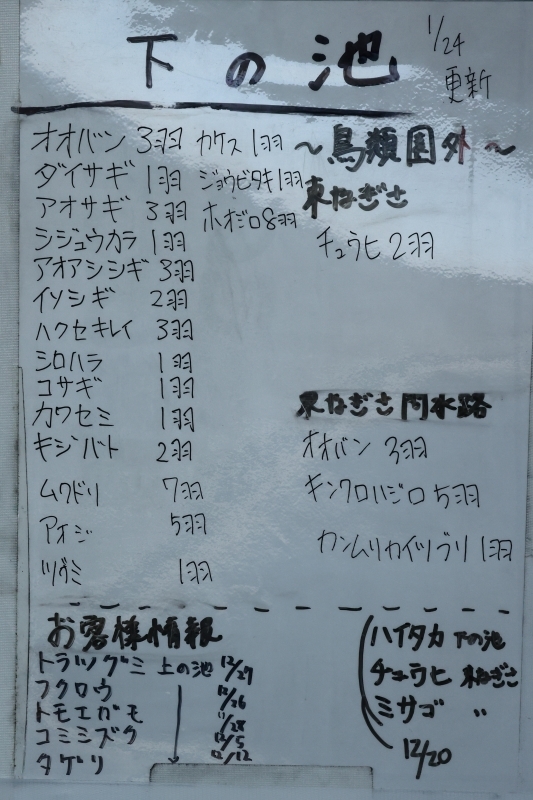 下の池
1/24
更新
オオバン 3羽
ダイサギ 1羽
アオサギ 3羽
シジュウカラ 1羽
アオアシシギ 3羽
イソシギ 2羽
ハクセキレイ 3羽
シロハラ 1羽
コサギ 1羽
カワセミ 1羽
キジバト 2羽
ムクドリ 7羽
アオジ 5羽
ツグミ 1羽
カケス 1羽
ジョウビタキ 1羽
ホオジロ 8羽
～鳥類園外～
東なぎさ
チュウヒ 2羽
東なぎさ 間水路
オオバン 3羽
キンクロハジロ 5羽
カンムリカイツブリ 1羽
お客様情報
トラツグミ 上の池 12/27
フクロウ 12/26
トモエガモ 11/28
コミミズク 12/5
タゲリ 12/12
ハイタカ 下の池
チュウヒ 東なぎさ
ミサゴ 〃
12/20